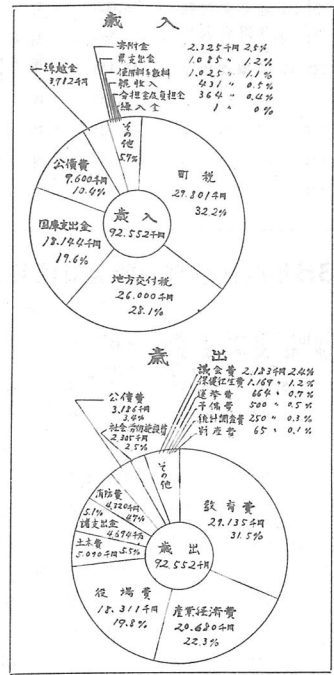 歳入
寄附金 2.325千円 2.5%
県支出金 1.085〃 1.2%
使用料手数料 1.025〃 1.1%
雑収入 431〃 0.5%
分担金及負担金 364〃 0.4%
繰入金 1〃 0%
繰越金
3.782千円
その他
5.7%
町税
29.801千円
32.2%
公債費
9.600千円
10.4%
国庫支出金
18.144千円
19.6%
地方交付税
26.000千円
28.1%
歳入
92.552千円
歳出
議会費 2.183千円 2.4%
保健衛生費 1.169〃 1.2%
選挙費 664〃 0.7%
予備費 500〃 0.5%
統計調査費 250〃 0.3%
財産費 65〃 0.1%
公債費
3.186千円
3.4%
社会労働施設費
2.305千円
2.5%
その他
消防費
4.320千円
4.7%
5.1%
諸支出金
4.694千円
土木費
5.090千円 5.5%
教育費
29.135千円
31.5%
歳出
92.552千円
役場費
18.311千円
19.8%
産業経済費
20.680千円
22.3%